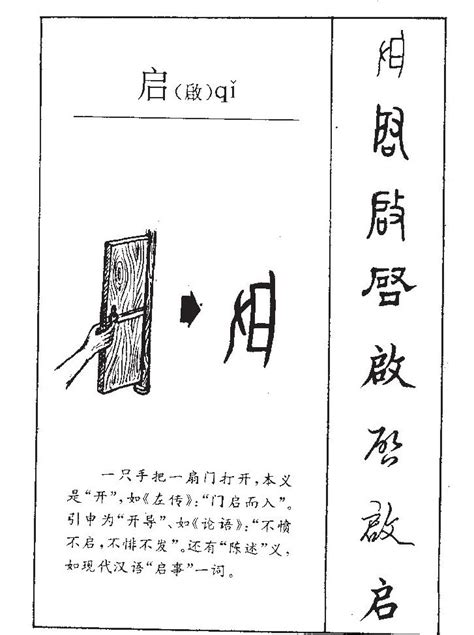 启(啟)qǐ
一只手把一扇门打开,本义
是“开”,如《左传》:“门启而入”。
引申为“开导”、如《论语》:“不愤
不启,不悱不发”。还有“陈述”义,
如现代汉语“启事”一词。
啟
啓
啟
啟
启